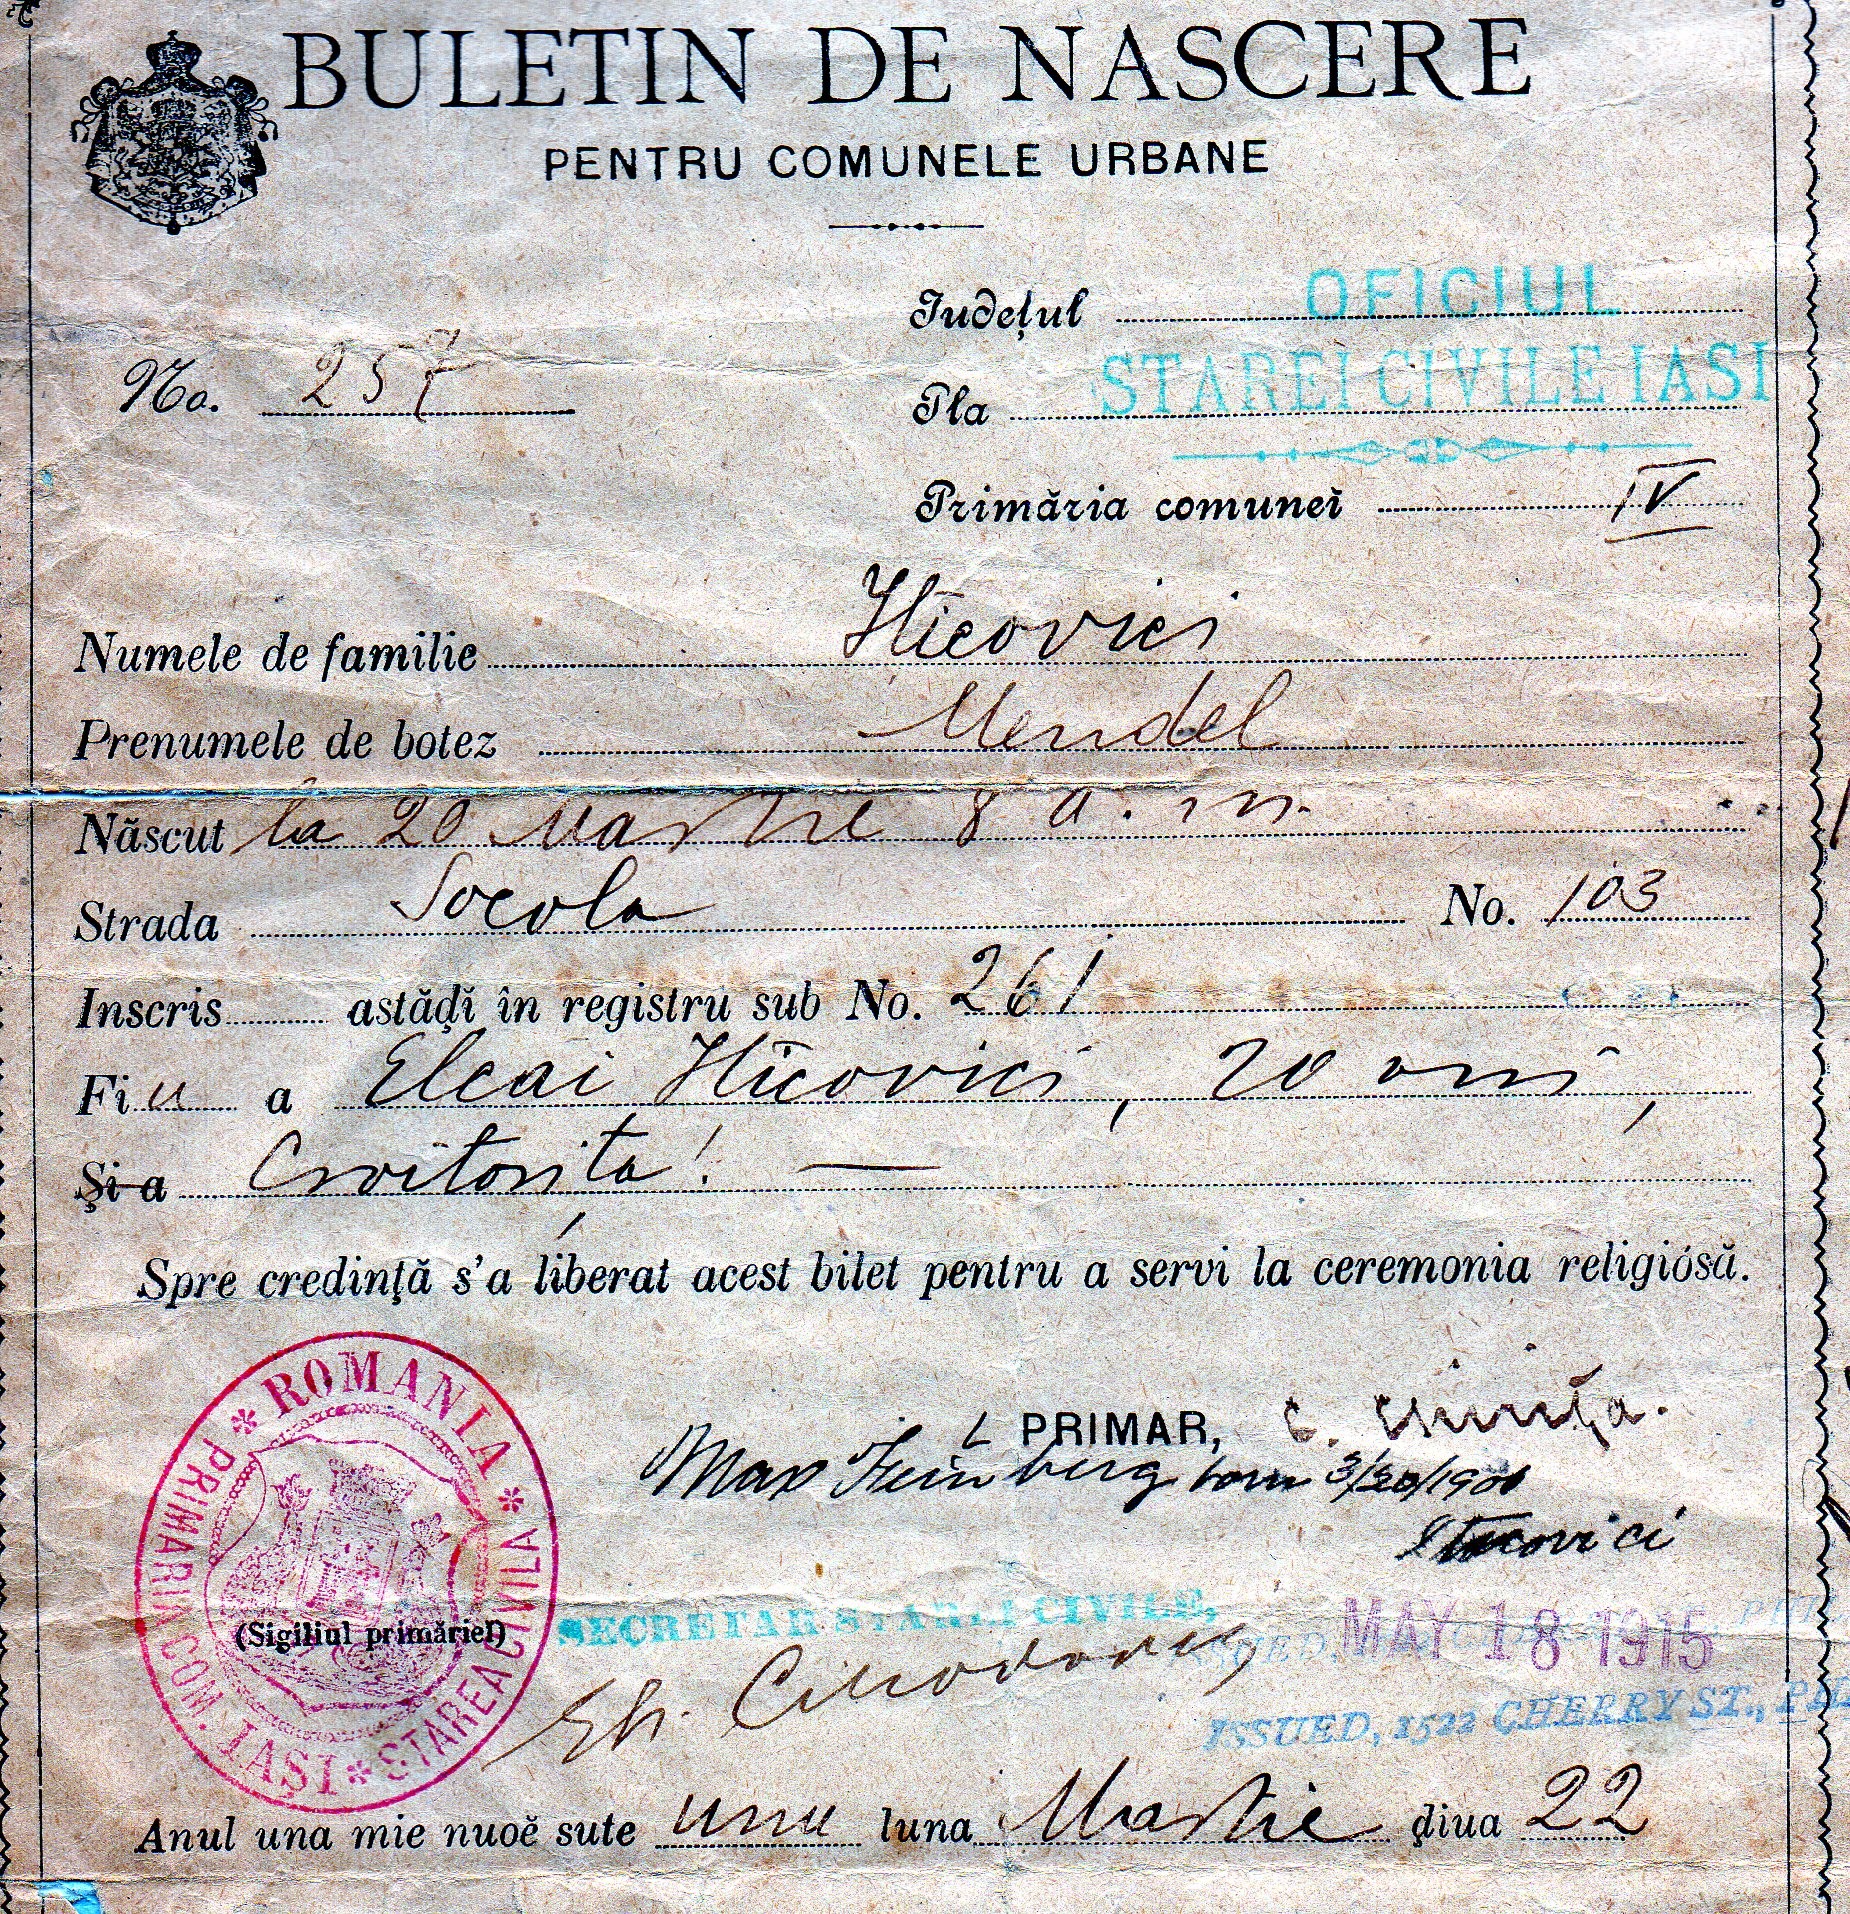 BULETIN DE NASCERE
PENTRU COMUNELE URBANE
Județul OFICIUL
No. 257
Pla STAREI CIVILE IASI
Primăria comuneĭ IV
Numele de familie Iticovici
Prenumele de botez Mendel
Născut la 20 Martie 8 a. m.
Strada Socola No. 103
Inscris astăḑĭ în registru sub No. 261
Fiu a Elcai Iticovici, 20 ani,
Și a Croitorița! —
Spre credință s'a liberat acest bilet pentru a servi la ceremonia religiósă.
PRIMAR, C.
Max born 3/20/1901
ROMANIA * STAREA CIVILA * PRIMARIA COM. IAȘI *
(Sigiliul primărieĭ)
SECRETAR STAREI CIVILE,
MAY 18 1915
ISSUED, 1522 CHERRY ST.,
Anul una mie nuoĕ sute unu luna Martie ḑiua 22